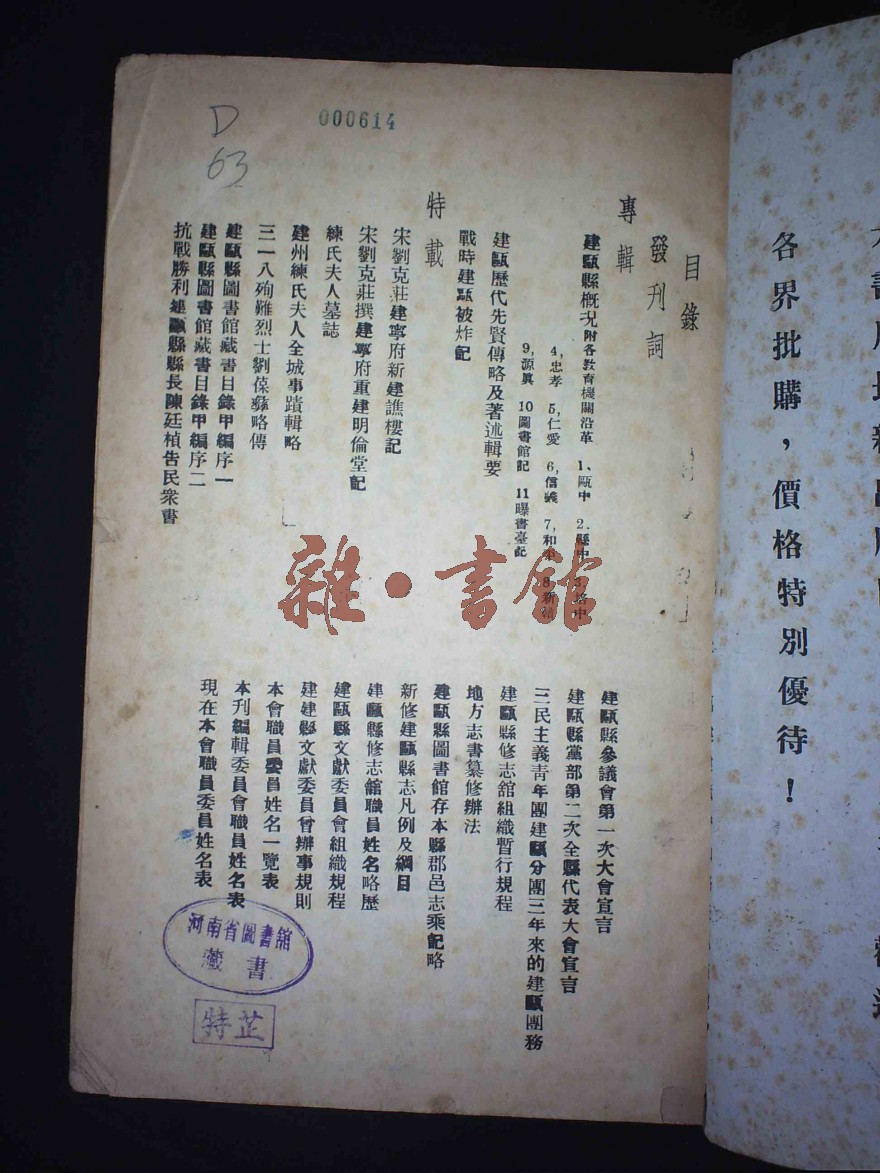 各界批購，價格特別優待！
000614
D
63
目錄
發刊詞
專輯
建甌縣概況附各教育機關沿革 1、甌中 2.縣中 3.培中
4,忠孝 5,仁愛 6,信義 7,和平 8,新積
9,源眞 10圖書館記 11曝書臺記
建甌歷代先賢傳略及著述輯要
戰時建甌被炸記
特載
宋劉克莊建寧府新建譙樓記
宋劉克莊撰建寧府重建明倫堂記
練氏夫人墓誌
建州練氏夫人全城事蹟輯略
三一八殉難烈士劉葆彝略傳
建甌縣圖書館藏書目錄甲編序一
建甌縣圖書館藏書目錄甲編序二
抗戰勝利建甌縣縣長陳廷楨告民衆書
建甌縣參議會第一次大會宣言
建甌縣黨部第二次全縣代表大會宣言
三民主義青年團建甌分團三年來的建甌團務
建甌縣修志舘組織暫行規程
地方志書纂修辦法
建甌縣圖書館存本縣郡邑志乘記略
新修建甌縣志凡例及綱目
建甌縣修志舘職員姓名略歷
建甌縣文獻委員會組織規程
建建縣文獻委員會辦事規則
本會職員委員姓名一覽表
本刊編輯委員會職員姓名表
現在本會職員委員姓名表
雜·書館
河南省圖書館
藏書
特芷